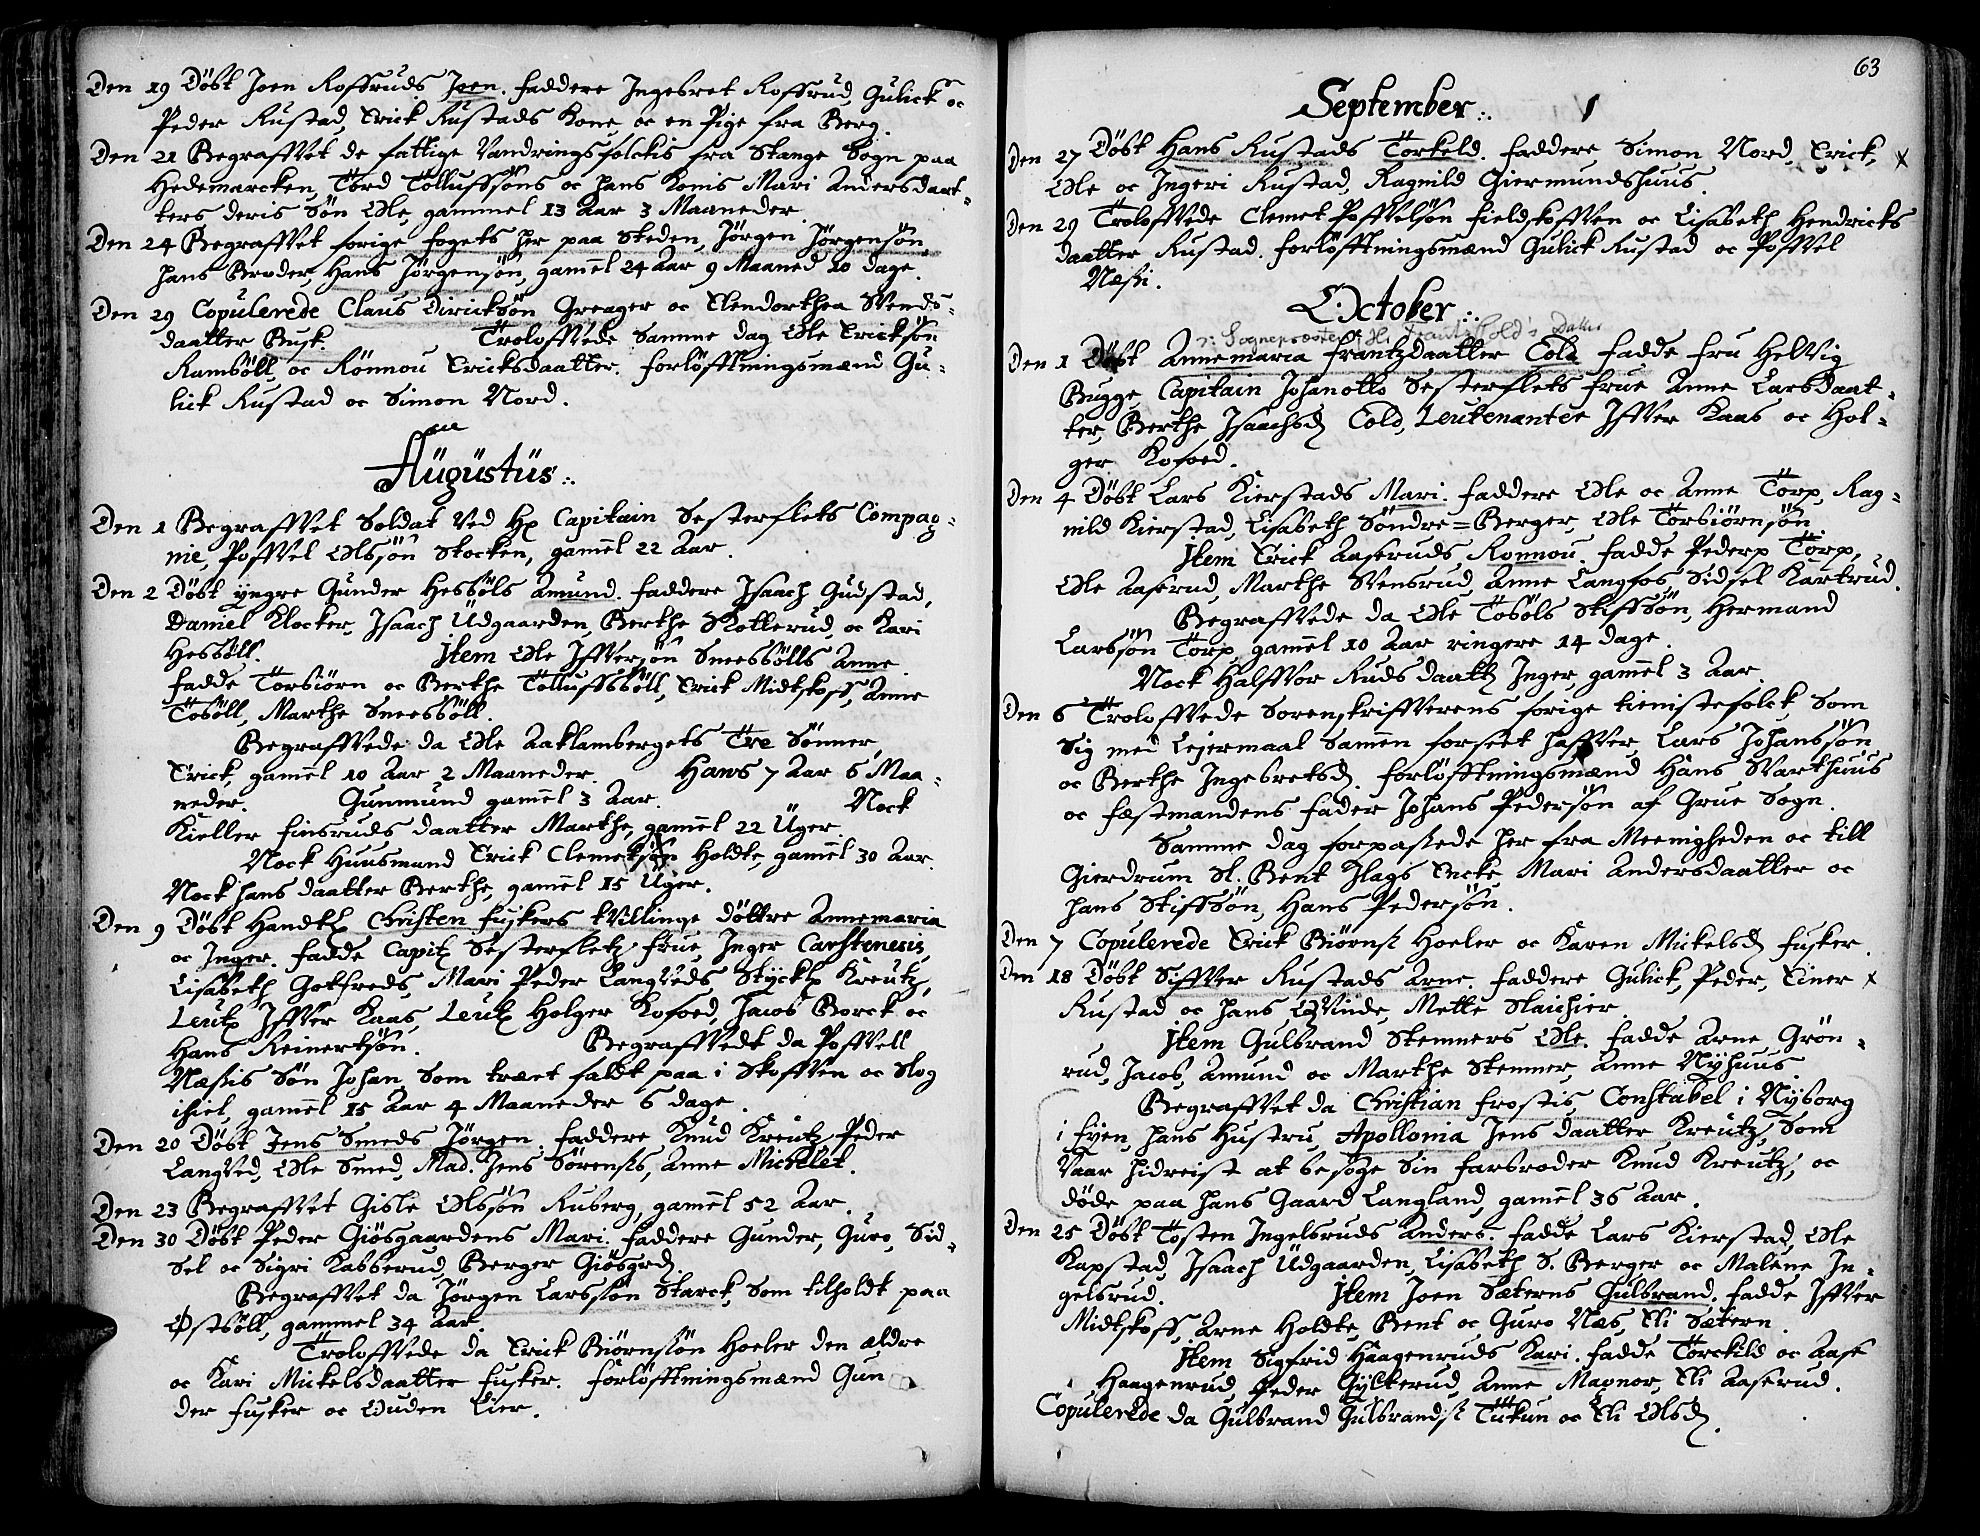 Den 19 Döbt Joen Roffruds Joen. faddere Ingebret Roffrud, Gulick oc
Peder Rustad, Erick Rustads Kone oc en Pige fra Berg.
Den 21 Begraffvet de fattige Vandringsfolckis fra Stange Sogn paa
Hedemarcken, Tord Tolluffsöns oc hans Konis Mari Andersdaat-
ters deris Sön Ole, gammel 13 Aar 3 Maaneder.
Den 24 Begraffvet forige fogets her paa Steden, Jörgen Jörgensön
hans Broder, Hans Jörgensön, gamel 24 Aar 9 Maaned 20 dage.
Den 29 Copulerede Claus Diricksön Greager oc Elendorthea Svends-
daatter Busk. Troloffvede Samme dag Ole Ericksön
Ramsöll, oc Rönnou Ericksdaatter. forlöfftningsmænd Gu-
lick Rustad oc Simon Nord.
Augustus
Den 1 Begraffvet Soldat ved Hr Capitain Sesterflets Compag-
nie, Poffvel Olssön Stocken, gamel 22 Aar.
Den 2 Döbt yngre Gunder Hessöls Amund. faddere Isaach Gudstad,
Daniel Klocker, Isaach Udgaarden, Berthe Skotterud, oc Kari
Hessöll. Item Ole Iffversön Sneessölls Anne
fadde Torbiörn oc Berthe Tolluffsböll, Erick Midtskoff, Anne
Tosöll, Marthe Sneessöll.
Begraffvede da Ole Aaklambergets Tre Sönner,
Erick, gamel 10 Aar 2 Maaneder. Hans 7 Aar 6 Maa-
neder. Gunmund gamel 3 Aar. Nock
Kieller Finsruds daatter Marthe, gamel 22 Uger.
Nock Huusmand Erick Clemetsön Holdte, gamel 30 Aar.
Nock hans daatter Berthe, gamel 15 Uger.
Den 9 Döbt Christen fuskers tvillinge döttre Annemaria
oc Inger. fadde Capit Sesterfletz frue Inger Carstenesis,
Lisabeth Gotfreds, Mari Peder Langveds, Kreutz,
Leut Iffver Kaas, Leut Holger Kofoed, Jacob Borck oc
Hans Reinertsön. Begraffvedt da Poffvell
Næssis Sön Johan, Som træet faldt paa i Skoffven oc slog
ihiel, gamel 15 Aar 4 Maaneder 6 dage.
Den 20 Döbt Jens Smeds Jörgen. faddere Knud Kreutz, Peder
Langved, Ole Smed, Mad. Jens Sörensis, Anne Mickelet.
Den 23 Begraffvet Gisle Olssön Ruberg, gamel 52 Aar.
Den 30 Döbt Peder Giösgaardens Mari. faddere Gunder, Guro, Sid-
sel oc Sigri Kasserud, Berger Giösgrd.
Begraffvet da Jörgen Larssön Starck, Som tilholdt paa
Östsöll, gammel 34 Aar.
Troloffvede da Erick Biörnssön Hoeler den ældre
oc Kari Mickelsdaatter Fusker. forlöfftningsmænd Gun
der Fusker oc Ouden Lier.
63
September
Den 27 Döbt Hans Rustads Torkeld. faddere Simon Nord, Erick,
Ole oc Ingeri Rustad, Ragnild Giermundshuus.
Den 29 Troloffvede Clemet Poffvelsön Fieldskoffven oc Lisabeth Hendricks
daatter Rustad. forlöfftningsmænd Gulick Rustad oc Poffvel
Næssi.
October
Sogneprestens Hr Frantz Colds Datter
Den 1 Döbt Annemaria Frantzdaatter Cold. fadde fru Helvig
Bugge, Capitain Johanotto Sesterflets frue Anne Larsdaat-
ter, Berthe Isaachsd Cold, Leutenanter Iffver Kaas oc Hol-
ger Kofoed.
Den 4 Döbt Lars Kierstads Mari. faddere Ole oc Anne Torp, Rag-
nild Kierstad, Lisabeth Söndre=Berger, Ole Torbiörnsön.
Item Erick Aaseruds Ronnou. fadde Peder Torp,
Ole Aaserud, Marthe Svensrud, Anne Langfos, Sidsel Kartrud.
Begraffvede da Ole Tosöls Stiffsön, Hermand
Larssön Torp, gamel 10 Aar ringere 14 dage.
Nock Halffvor Ruds daatt Inger, gamel 3 Aar.
Den 6 Troloffvede Sorenskrifverens forige tienistefolck, Som
Sig med Lejermaal Samen forseet haffver, Lars Johanssön
oc Berthe Ingebretsd. forlöfftningsmænd Hans Svarthuus
oc fæstmandens fader Johans Pedersön af Grue Sogn.
Samme dag forpassede her fra Meenigheden oc till
Gierdrum Sl. Bent Flags Encke Mari Andersdaatter oc
hans Stiffsön, Hans Pedersön.
Den 7 Copulerede Erick Biörns Hoeler oc Karen Mickelsd Fusker.
Den 18 Döbt Siffver Rustads Arne. faddere Gulick, Peder, Einer
Rustad oc hans Qvinde, Mette Slaichier.
Item Gulbrand Stemners Ole. fadde Arne Grön-
rud, Jacob, Amund oc Marthe Stemner, Anne Nyhuus.
Begraffvet da Christian Frostis, Constabel i Nyborg
i Fyen, hans Hustru, Apollonia Jens daatter Kreutz, Som
Vaar hidreist at besöge Sin farbroder Knud Kreutz, oc
döde paa hans Gaard Langland, gamel 36 Aar.
Den 25 Döbt Tosten Ingelsruds Anders. fadde Lars Kierstad, Ole
Kapstad, Isaach Udgaarden, Lisabeth S. Berger oc Malene In-
gelsrud. Item Joen Sæterns Gulbrand. fadde Iffver
Midtskoff, Arne Holdte, Bent oc Guro Næs, Eli Sætern.
Item Sigfrid Haagenruds Kari. fadde Torckild oc Aase
Haagenrud, Peder Gylterud, Anne Maanor, Eli Aaserud.
Copulerede da Gulbrand Gulbrands Tukun oc Eli Olsd.